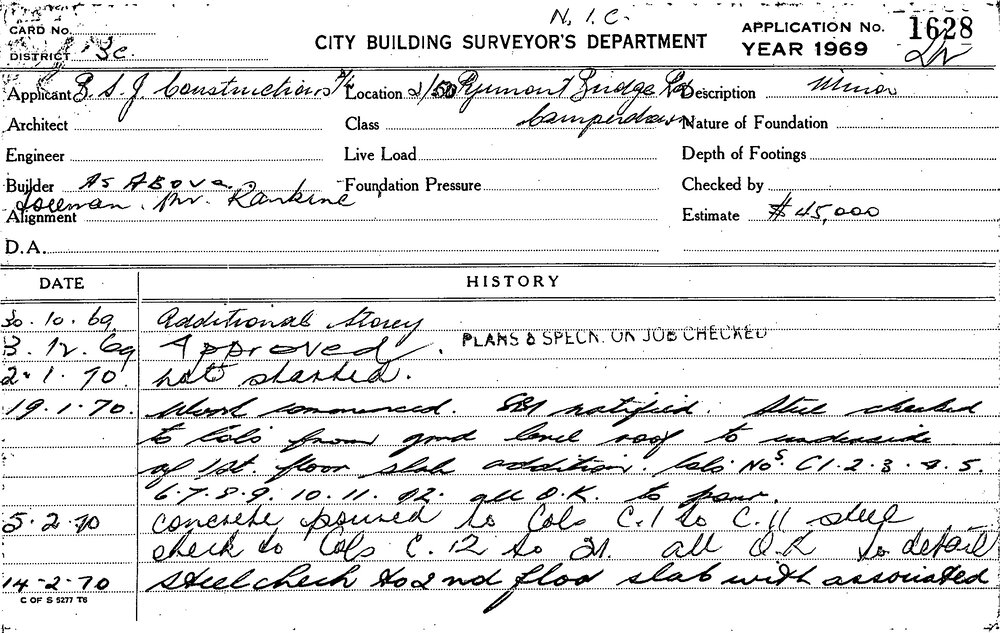 N. I. C.
CARD No.
CITY BUILDING SURVEYOR'S DEPARTMENT
APPLICATION No. 1628
DISTRICT 3c.
YEAR 1969
Applicant B.S.J. Constructions P/L Location 2/50 Pyrmont Bridge Rd Description Minor
Architect Class Camperdown Nature of Foundation
Engineer Live Load Depth of Footings
Builder As Above Foundation Pressure Checked by
foreman. Mr. Rankine
Alignment Estimate $45,000
D.A.
DATE HISTORY
30.10.69 Additional Storey
3.12.69 Approved. PLANS & SPECN. ON JOB CHECKED
2.1.70. not started.
19.1.70. Work commenced. notified. Steel checked
to Cols from grnd level roof to underside
of 1st. floor slab addition. Cols Nos C1.2.3.4.5.
6.7.8.9.10.11.12. all O.K. to pour.
5.2.70 concrete poured to Cols C.1 to C.11 steel
check to Cols C.12 to 21. all O.K to detail
14-2-70 Steel check to 2nd floor slab with associated
C OF S 5277 T6